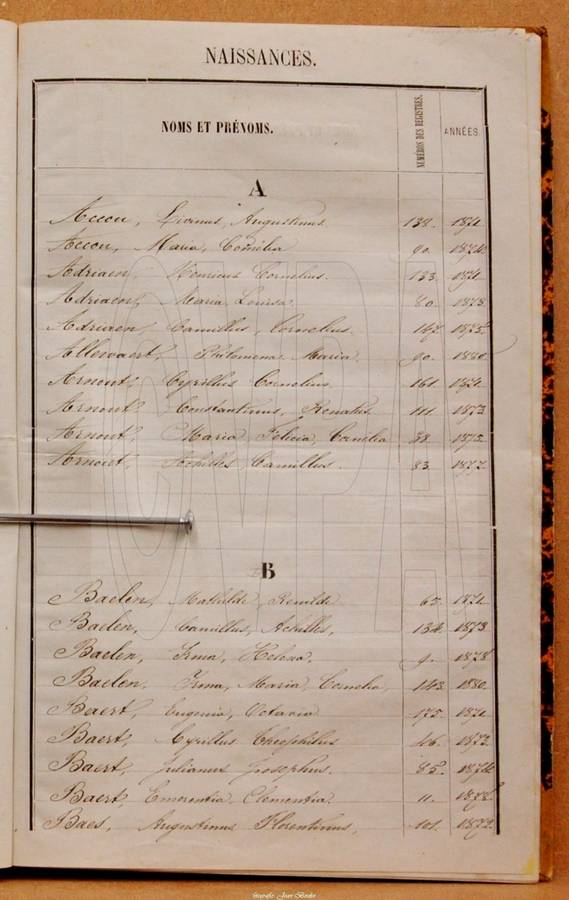 NAISSANCES.
NOMS ET PRÉNOMS.
NUMÉROS DES REGISTRES.
ANNÉES.
A
Accou, Livinus, Augustinus. 138. 1871
Accou, Maria, Cornelia 90. 1874
Adriaen, Henricus Cornelius. 133. 1871
Adriaen, Maria Louisa, 80. 1873
Adriaen, Camillus, Cornelius. 147. 1875
Allewaert, Philomena Maria. 90. 1880
Arnout, Cyrillus Cornelius. 161. 1871.
Arnout, Constantinus, Renatus. 111. 1873.
Arnout, Maria Felicia, Cornelia 38. 1875.
Arnout, Achilles, Camillus. 83. 1877.
B
Baelen, Mathilde, Remilde 65. 1871.
Baelen, Camillus, Achilles, 134. 1873
Baelen, Irma, Helena. 9. 1878
Baelen, Irma, Maria, Cornelia, 143 1880.
Baert, Eugenia, Octavia 175. 1871.
Baert, Cyrillus Theophilus 46. 1873.
Baert, Julianus Josephus. 85. 1874
Baert, Emerentia Clementia. 11. 1878
Baes, Augustinus Florentinus, 101. 1872.
fotografie: Jean Bordes